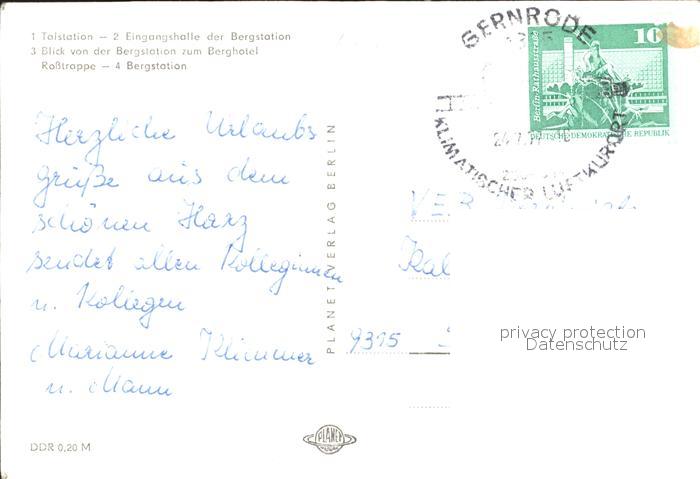 1 Talstation — 2 Eingangshalle der Bergstation
3 Blick von der Bergstation zum Berghotel
Roßtrappe — 4 Bergstation
Herzliche Urlaubs
grüße aus dem
schönen Harz
sendet allen Kolleginnen
u. Kollegen
Marianne Klimmer
u. Mann
DDR 0,20 M
PLANET-VERLAG BERLIN
PLANET
GERNRODE
KLIMATISCHER LUFTKURORT
24.7.
10
Berlin-Rathausstraße
DEUTSCHE DEMOKRATISCHE REPUBLIK
VEB
Kal
9315
privacy protection
Datenschutz